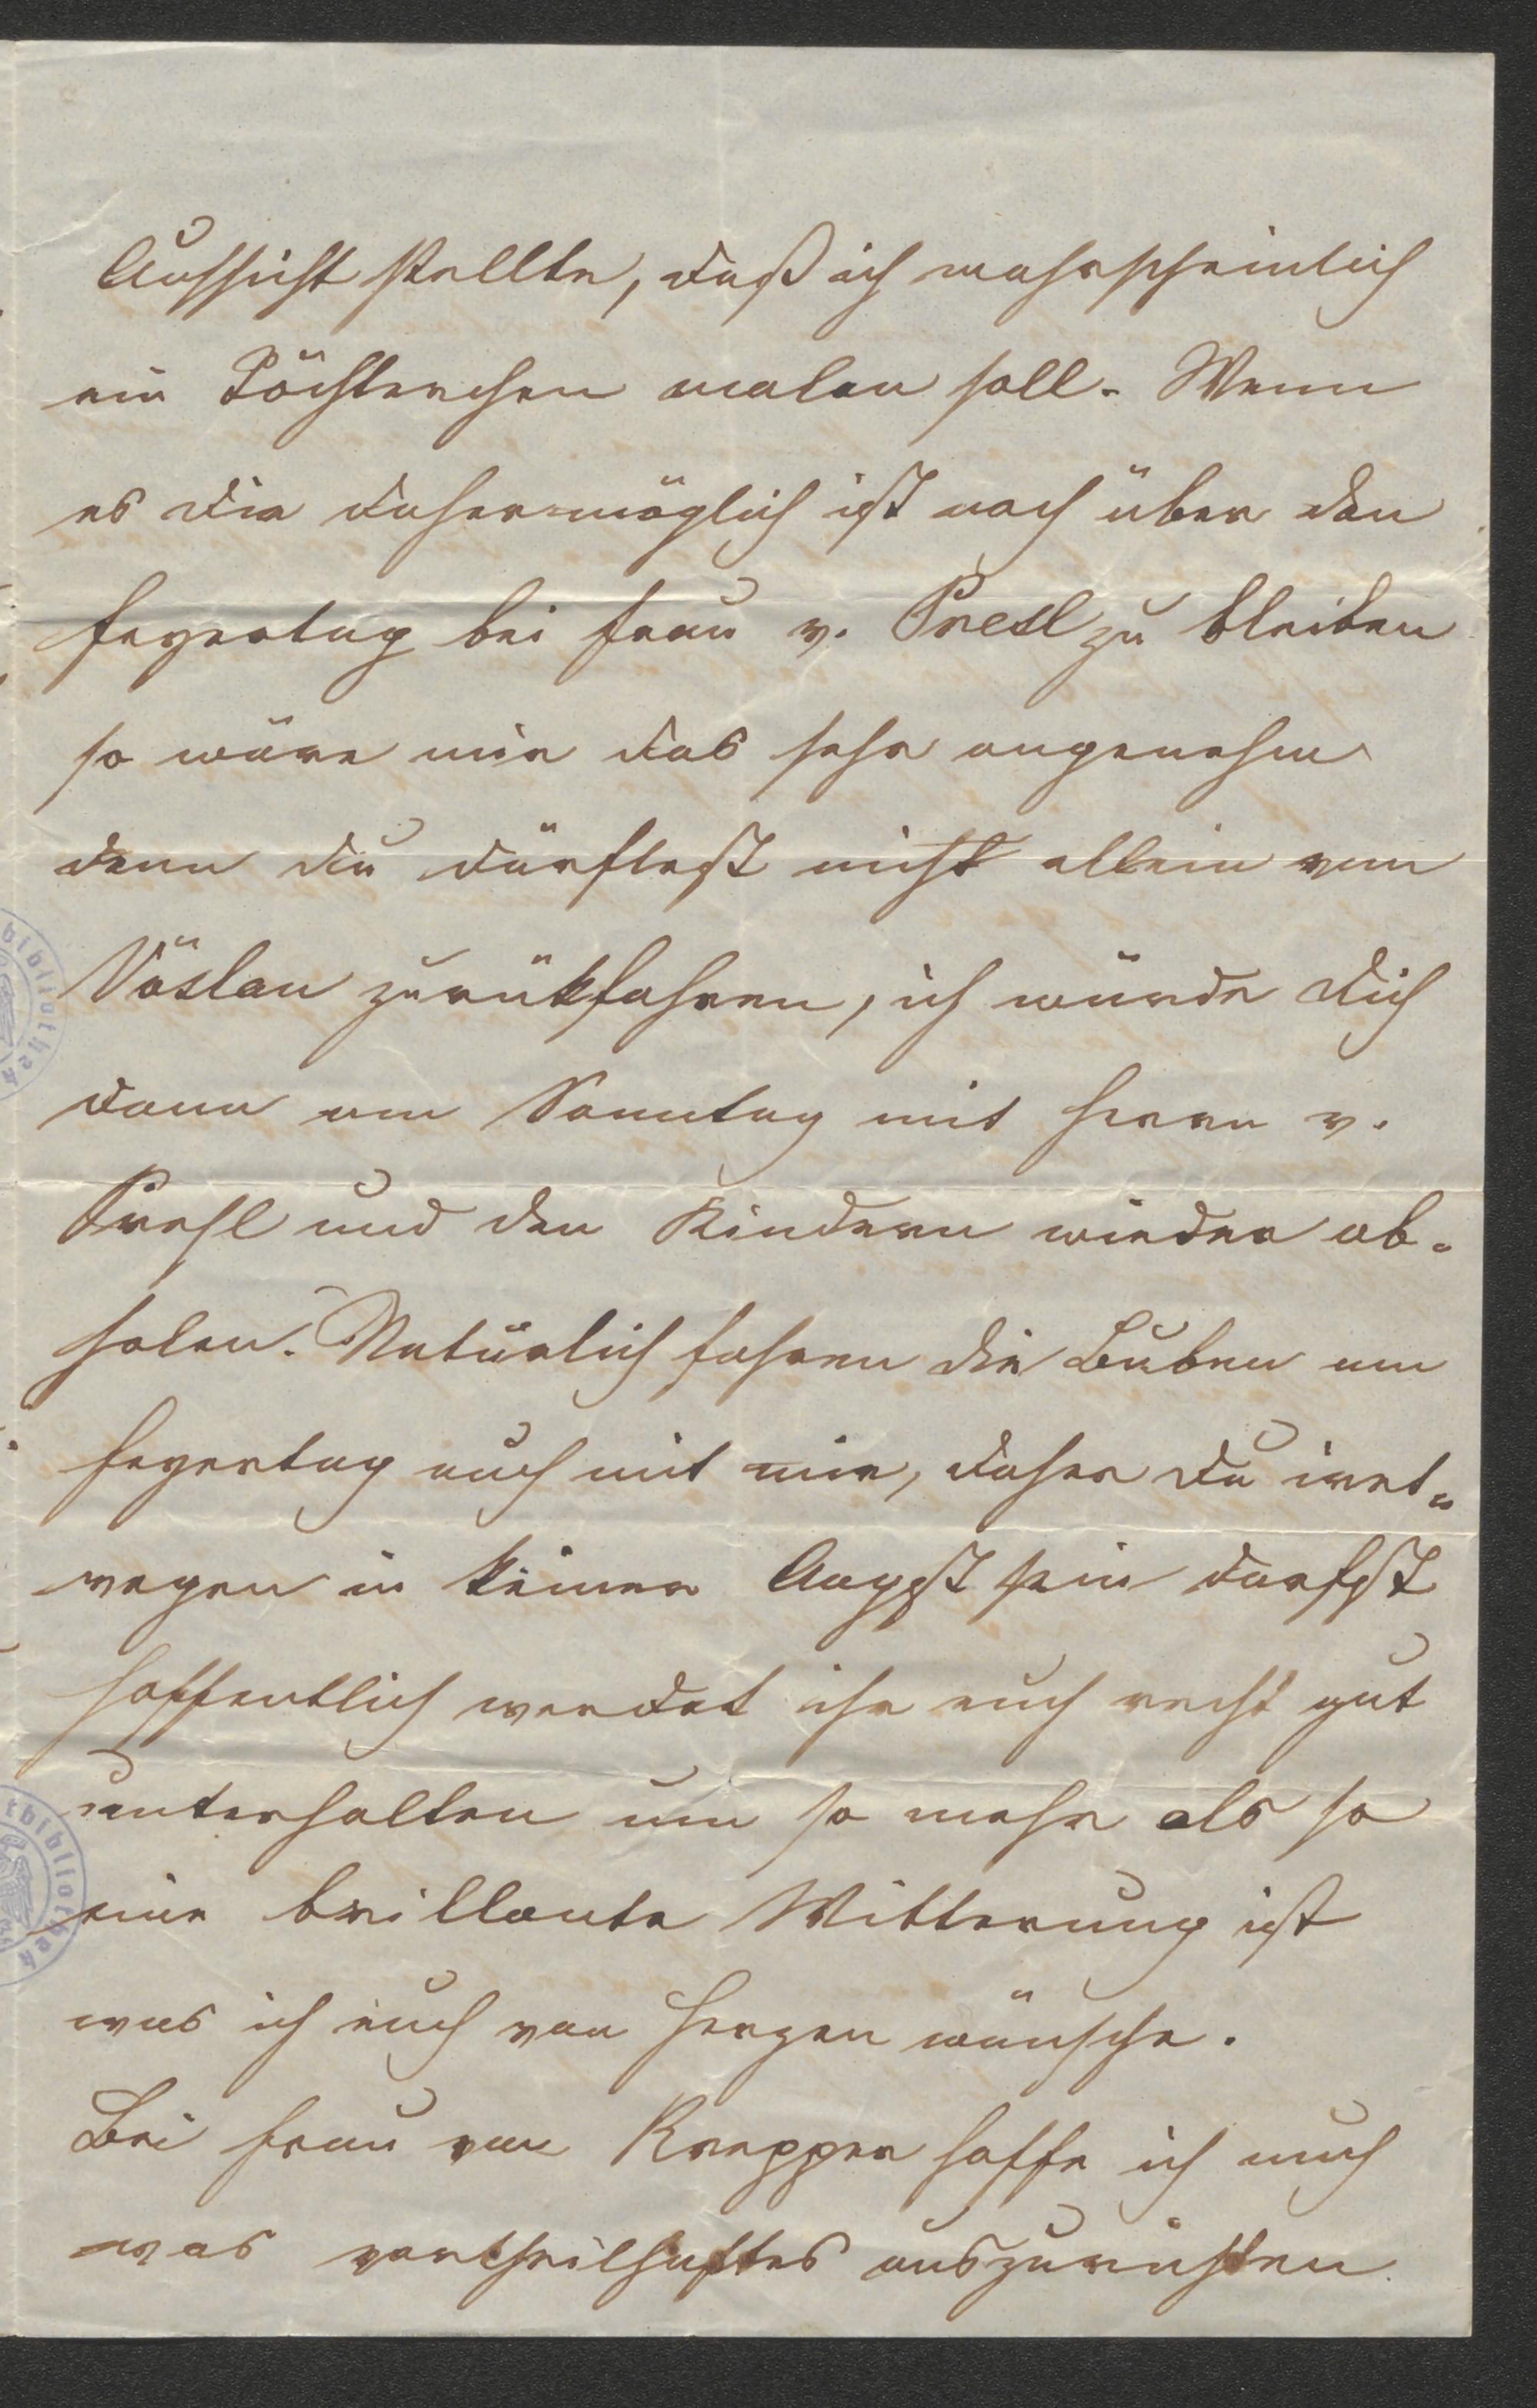 Aussicht stellte, daß ich wahrscheinlich
ein Töchterchen malen soll. Wenn
es dir daher möglich ist noch über den
Feyertag bei Frau v. Presl zu bleiben
so wäre mir das sehr angenehm
denn du dürftest nicht allein von
Vöslau zurükfahren, ich würde dich
dann am Sonntag mit Herrn v.
Presl und den Kindern wieder ab-
holen. Natürlich fahren die Buben am
Feyertag auch mit mir, daher du
wegen in keiner Angst sein darfst
hoffentlich werdet ihr euch recht gut
unterhalten um so mehr als so
eine brillante Witterung ist
was ich euch von Herzen wünsche.
Bei Frau von Krepper hoffe ich auch
was vortheilhaftes auszurichten.